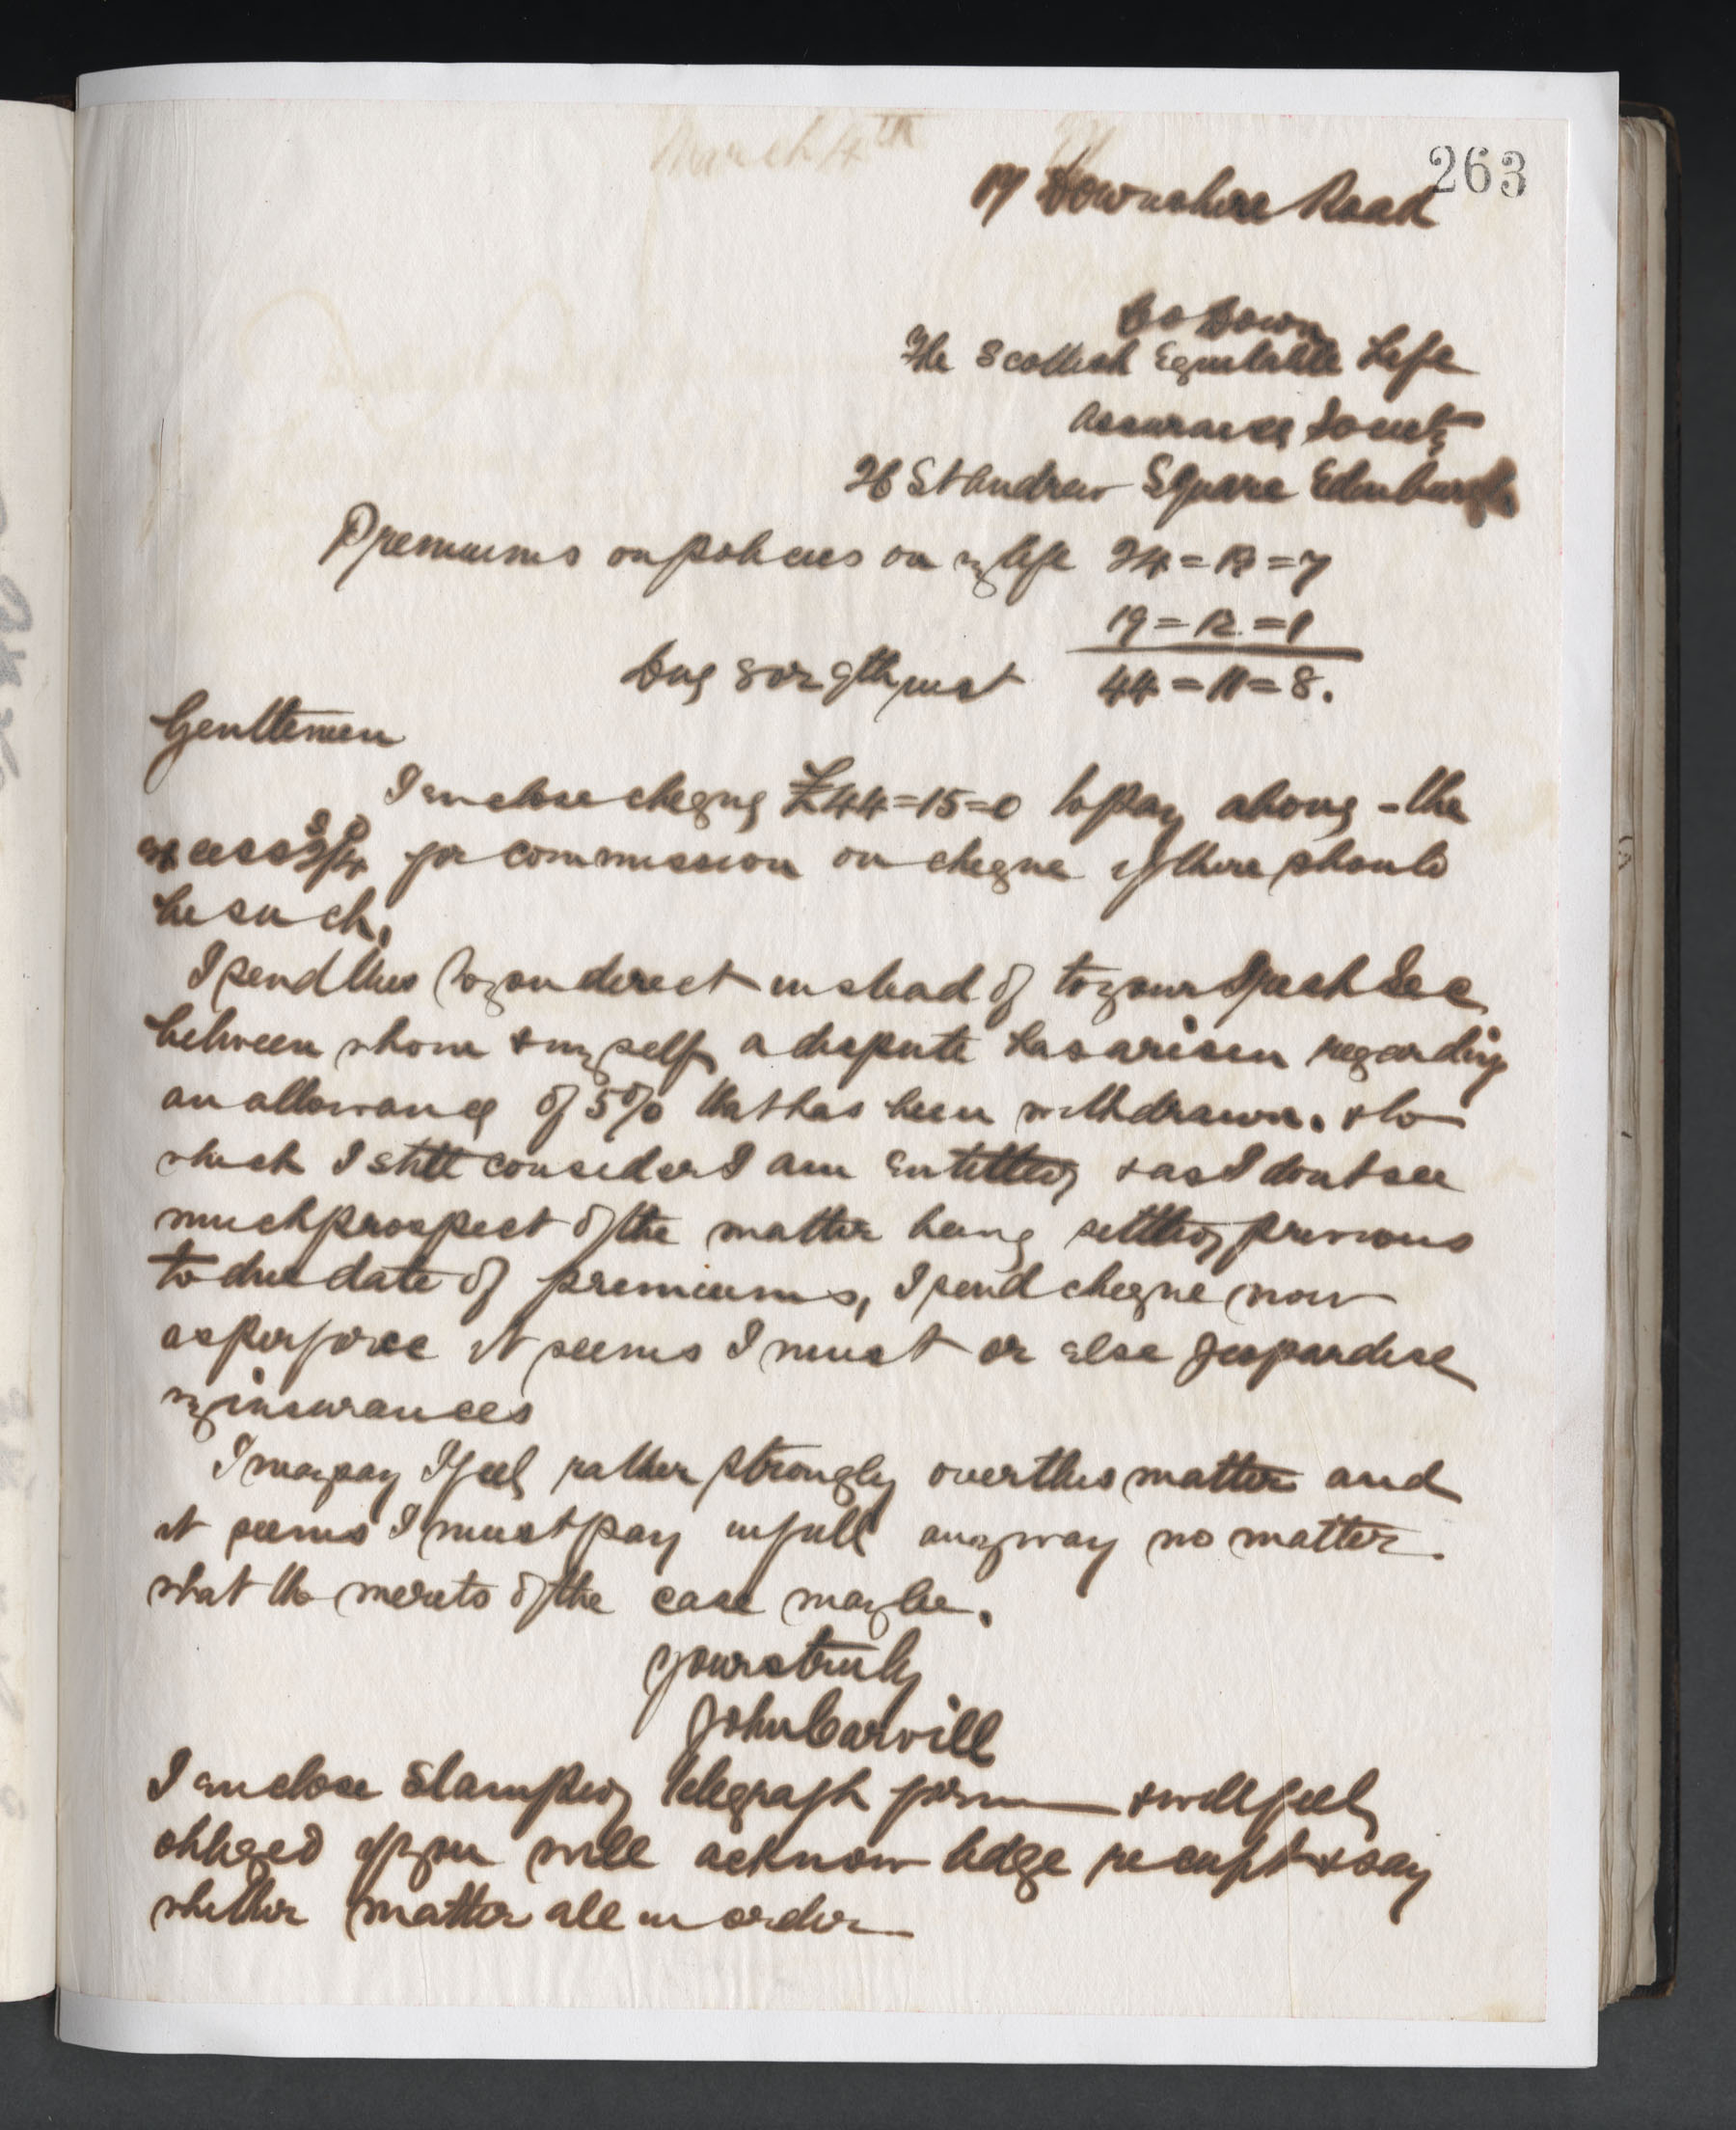 March 4th
263
17 Downshire Road
Co Down
The Scottish Equitable Life
Assurance Society
26 St Andrew Square Edinburgh
Premiums on policies on my life 24=18=7
19=13=1
Due 8 or 9th inst 44=11=8.
Gentlemen
I enclose cheque £44=15=0 to pay above - the
excess 3/4 for commission on cheque if there should
be such.
I send this to you direct instead of to your Sec
between whom & myself a dispute has arisen regarding
an allowance of 5% that has been withdrawn. & to
which I still consider I am entitled & as I dont see
much prospect of the matter being settled previous
to due date of premiums, I send cheque now
as perforce it seems I must or else jeopardise
my insurances
I may say I feel rather strongly over this matter and
it seems I must pay in full anyway no matter
what the merits of the case may be.
Yours truly
John Carvill
I enclose stamped telegraph form & will feel
obliged if you will acknowledge receipt & say
whether matter all in order